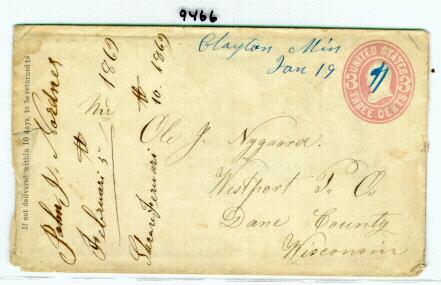 9466
Clayton Min
Jan 19
UNITED STATES
THREE CENTS
Ole J. Nygaard.
Westport P. O.
Dane County
Wisconsin
If not delivered within 10 days, to be returned to
John J.
Februari 5 1869
Februari 10. 1869